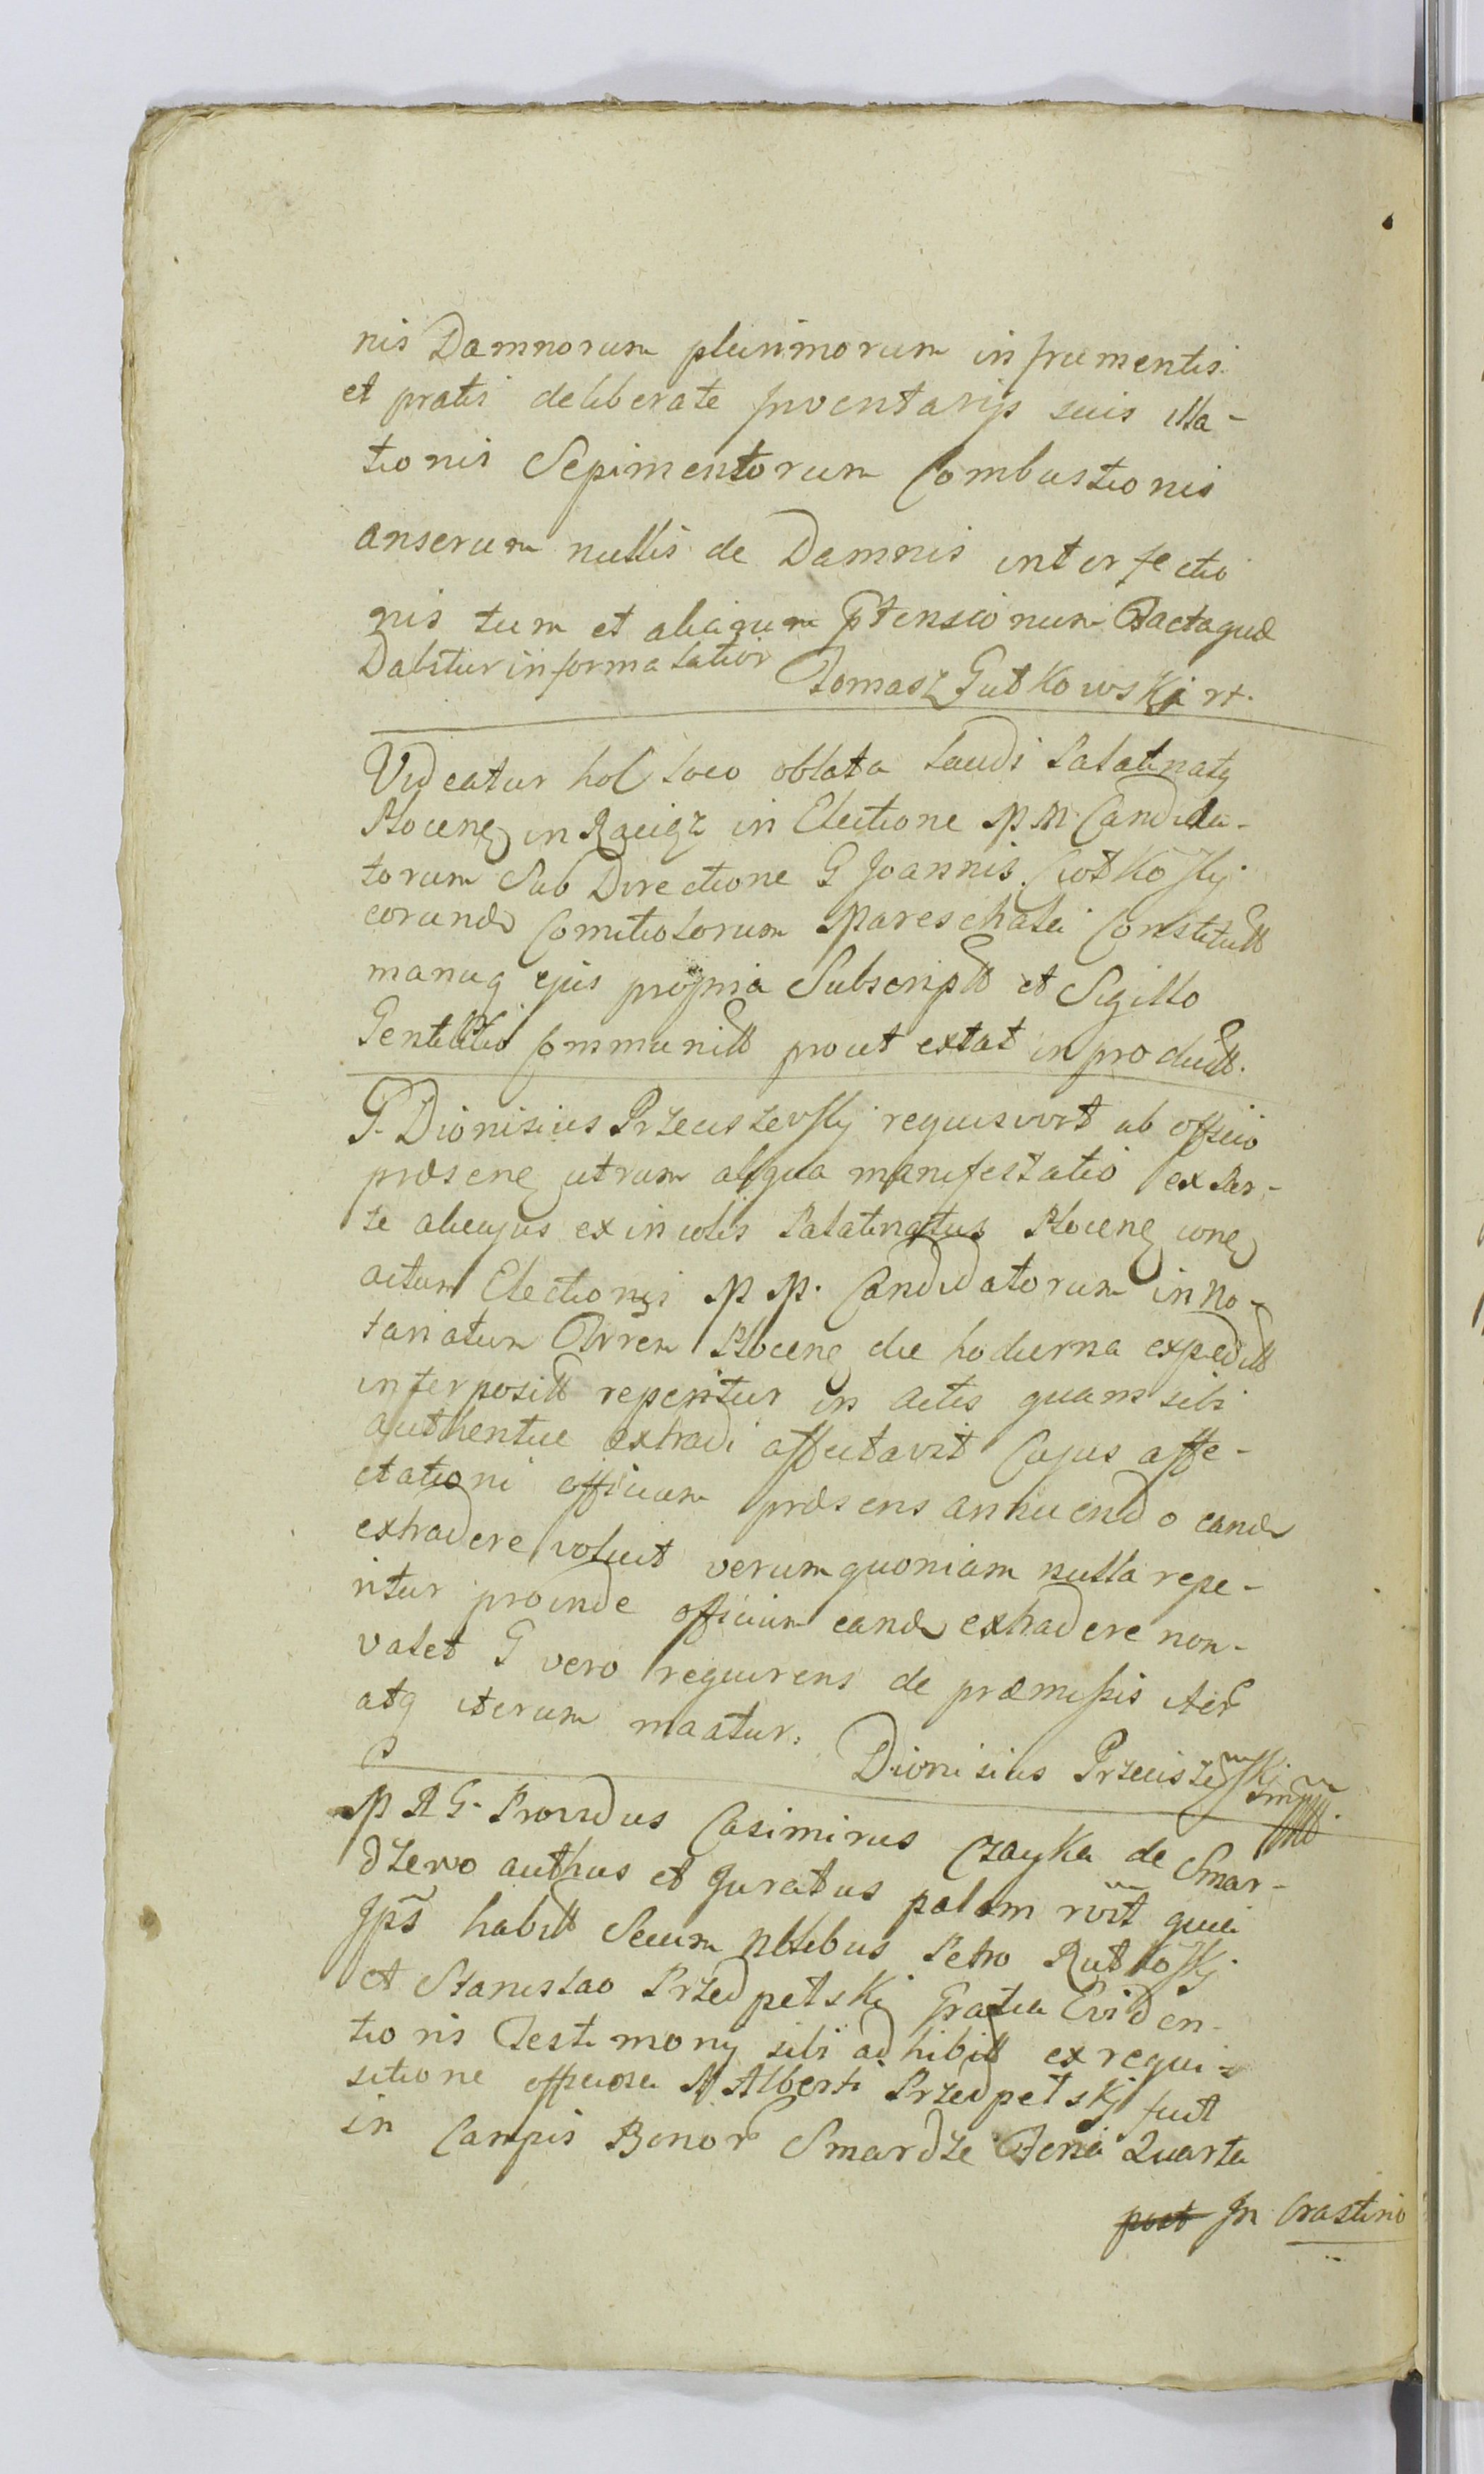 nis Damnorum plurimorum in frumentis
et pratis deliberate Inventarijs suis illa-
tionis Sepimentorum Combustionis
anserum nullis de Damnis interfectio
nis tum et aliarum ptensionum
Dabitur informa latior Tomasz Gutkowski
Videatur hoc loco oblata Laudi Palatinatq
Plocenẹ in Raciąz in Electione M M Candida-
torum Sub Directione G Joannis
eorund Comitiolorum Mareschalci Constitutt
manuq ejus propria Subscriptt et Sigillo
Gentilitio Communitt prout extat in producitt.
G. Dionisius Przeciszevsky requisivit ab officio
præsenẹ utrum aliqua manifestatio ex Par-
te alicujus ex incolis Palatinatus Plocenẹ conẹ
actum Electionis M M. Candidatorum in No-
tariatum Plocenẹ die hodierna expeditt
interpositt reperitur in actis quam sibi
authentice extradi affectavit Cujus affe-
ctationi officium præsens annuendo eand
extradere voluit verum quoniam nulla repe-
ritur proinde officium eand extradere non-
valet G vero requirens de præmissis iter
atq iterum maatur.
Dionisius
M R G. Providus Casimirus Czayka de Smar-
dzewo authus et Juratus palam rvit quia
Jps habitt Secum Nbłibus Petro Rutkosky
et Stanislao Przedpełski Gratia Eviden-
tioris Testimony sibi adhibitt ex requi-
sitione officiosa N Alberti Przedpełsky fuit
in Campis Bonor Smardze Feria Quarta
post In Crastino